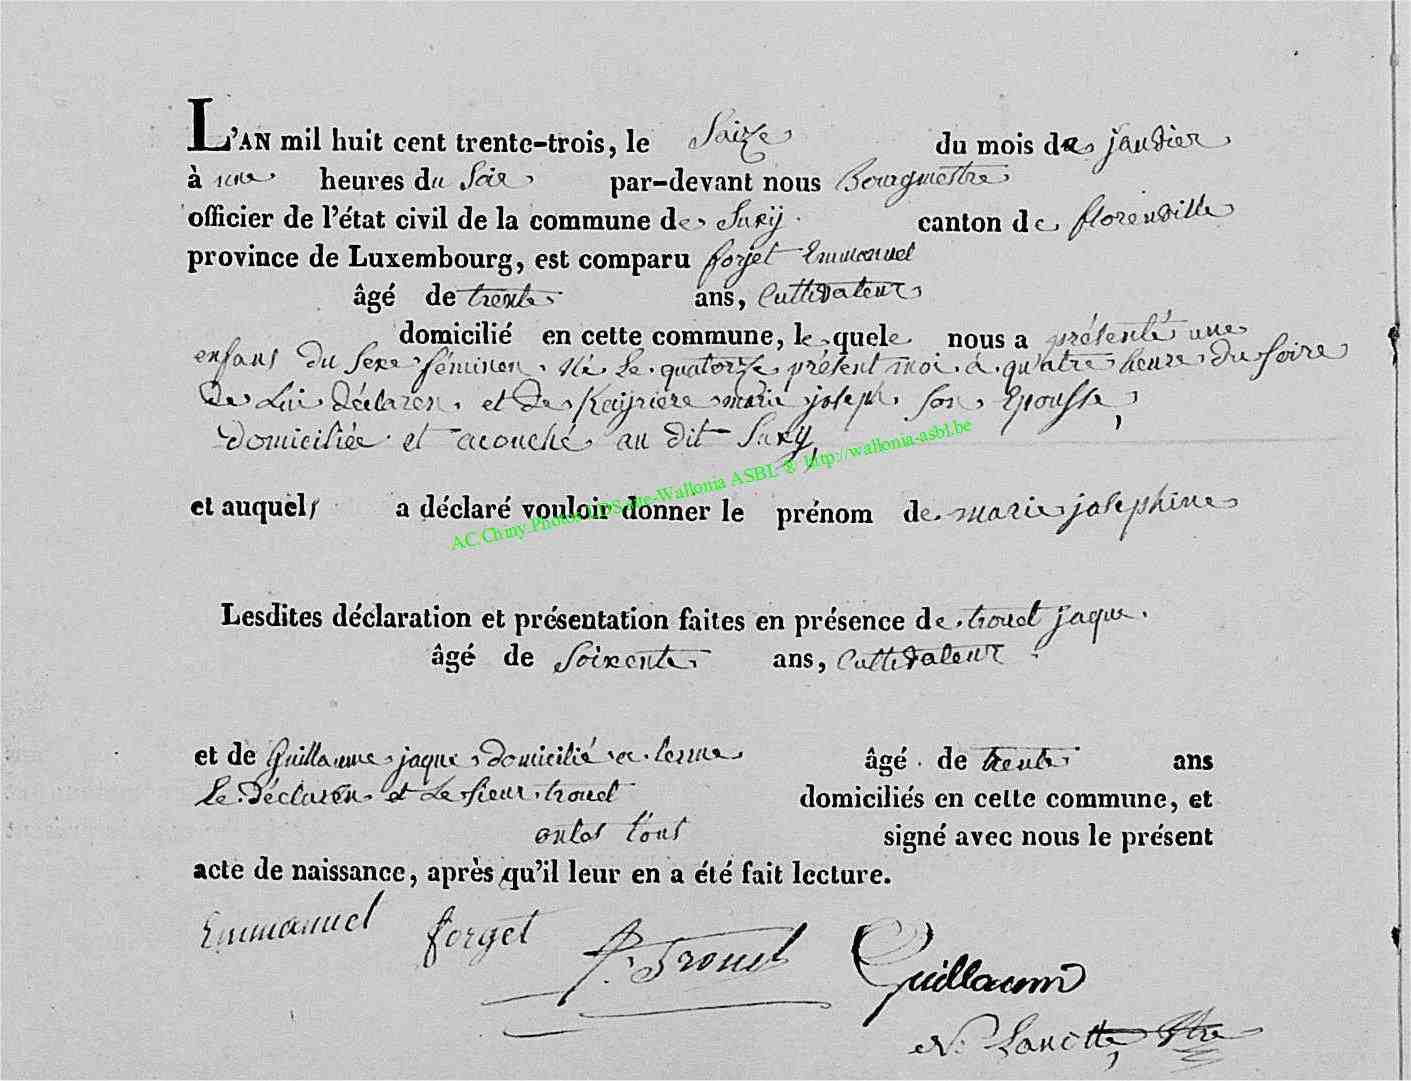 L'AN mil huit cent trente-trois, le Saize du mois de janvier
à une heures du Soir par-devant nous Bourgmestre
officier de l'état civil de la commune de Suxÿ canton de florenville
province de Luxembourg, est comparu forget Emmanuel
âgé de trente ans, Cultivateur
domicilié en cette commune, le quele nous a présenté une
enfans du Sexe féminen Né le quatorze présent moi à quatre heure du Soire
De Lui Déclaren et de marie joseph Son Epousse,
domiciliée et acouché au dit Suxÿ
AC.Chiny-Photos UDS-ste-Wallonia ASBL ® http://wallonia-asbl.be
et auquel a déclaré vouloir donner le prénom de marie josephine
Lesdites déclaration et présentation faites en présence de trouet jaque
âgé de Soixente ans, Cultivateur
et de Guillaume jaque domicilié a âgé de trente ans
Le Déclaren et Le Sieur trouet domiciliés en cette commune, et
ontes tous signé avec nous le présent
acte de naissance, après qu'il leur en a été fait lecture.
Emmanuel forget
J. Trouet Guillaum